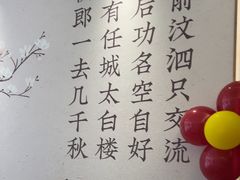 前汶泗只交流
后功名空自好
有任城太白楼
郎一去几千秋